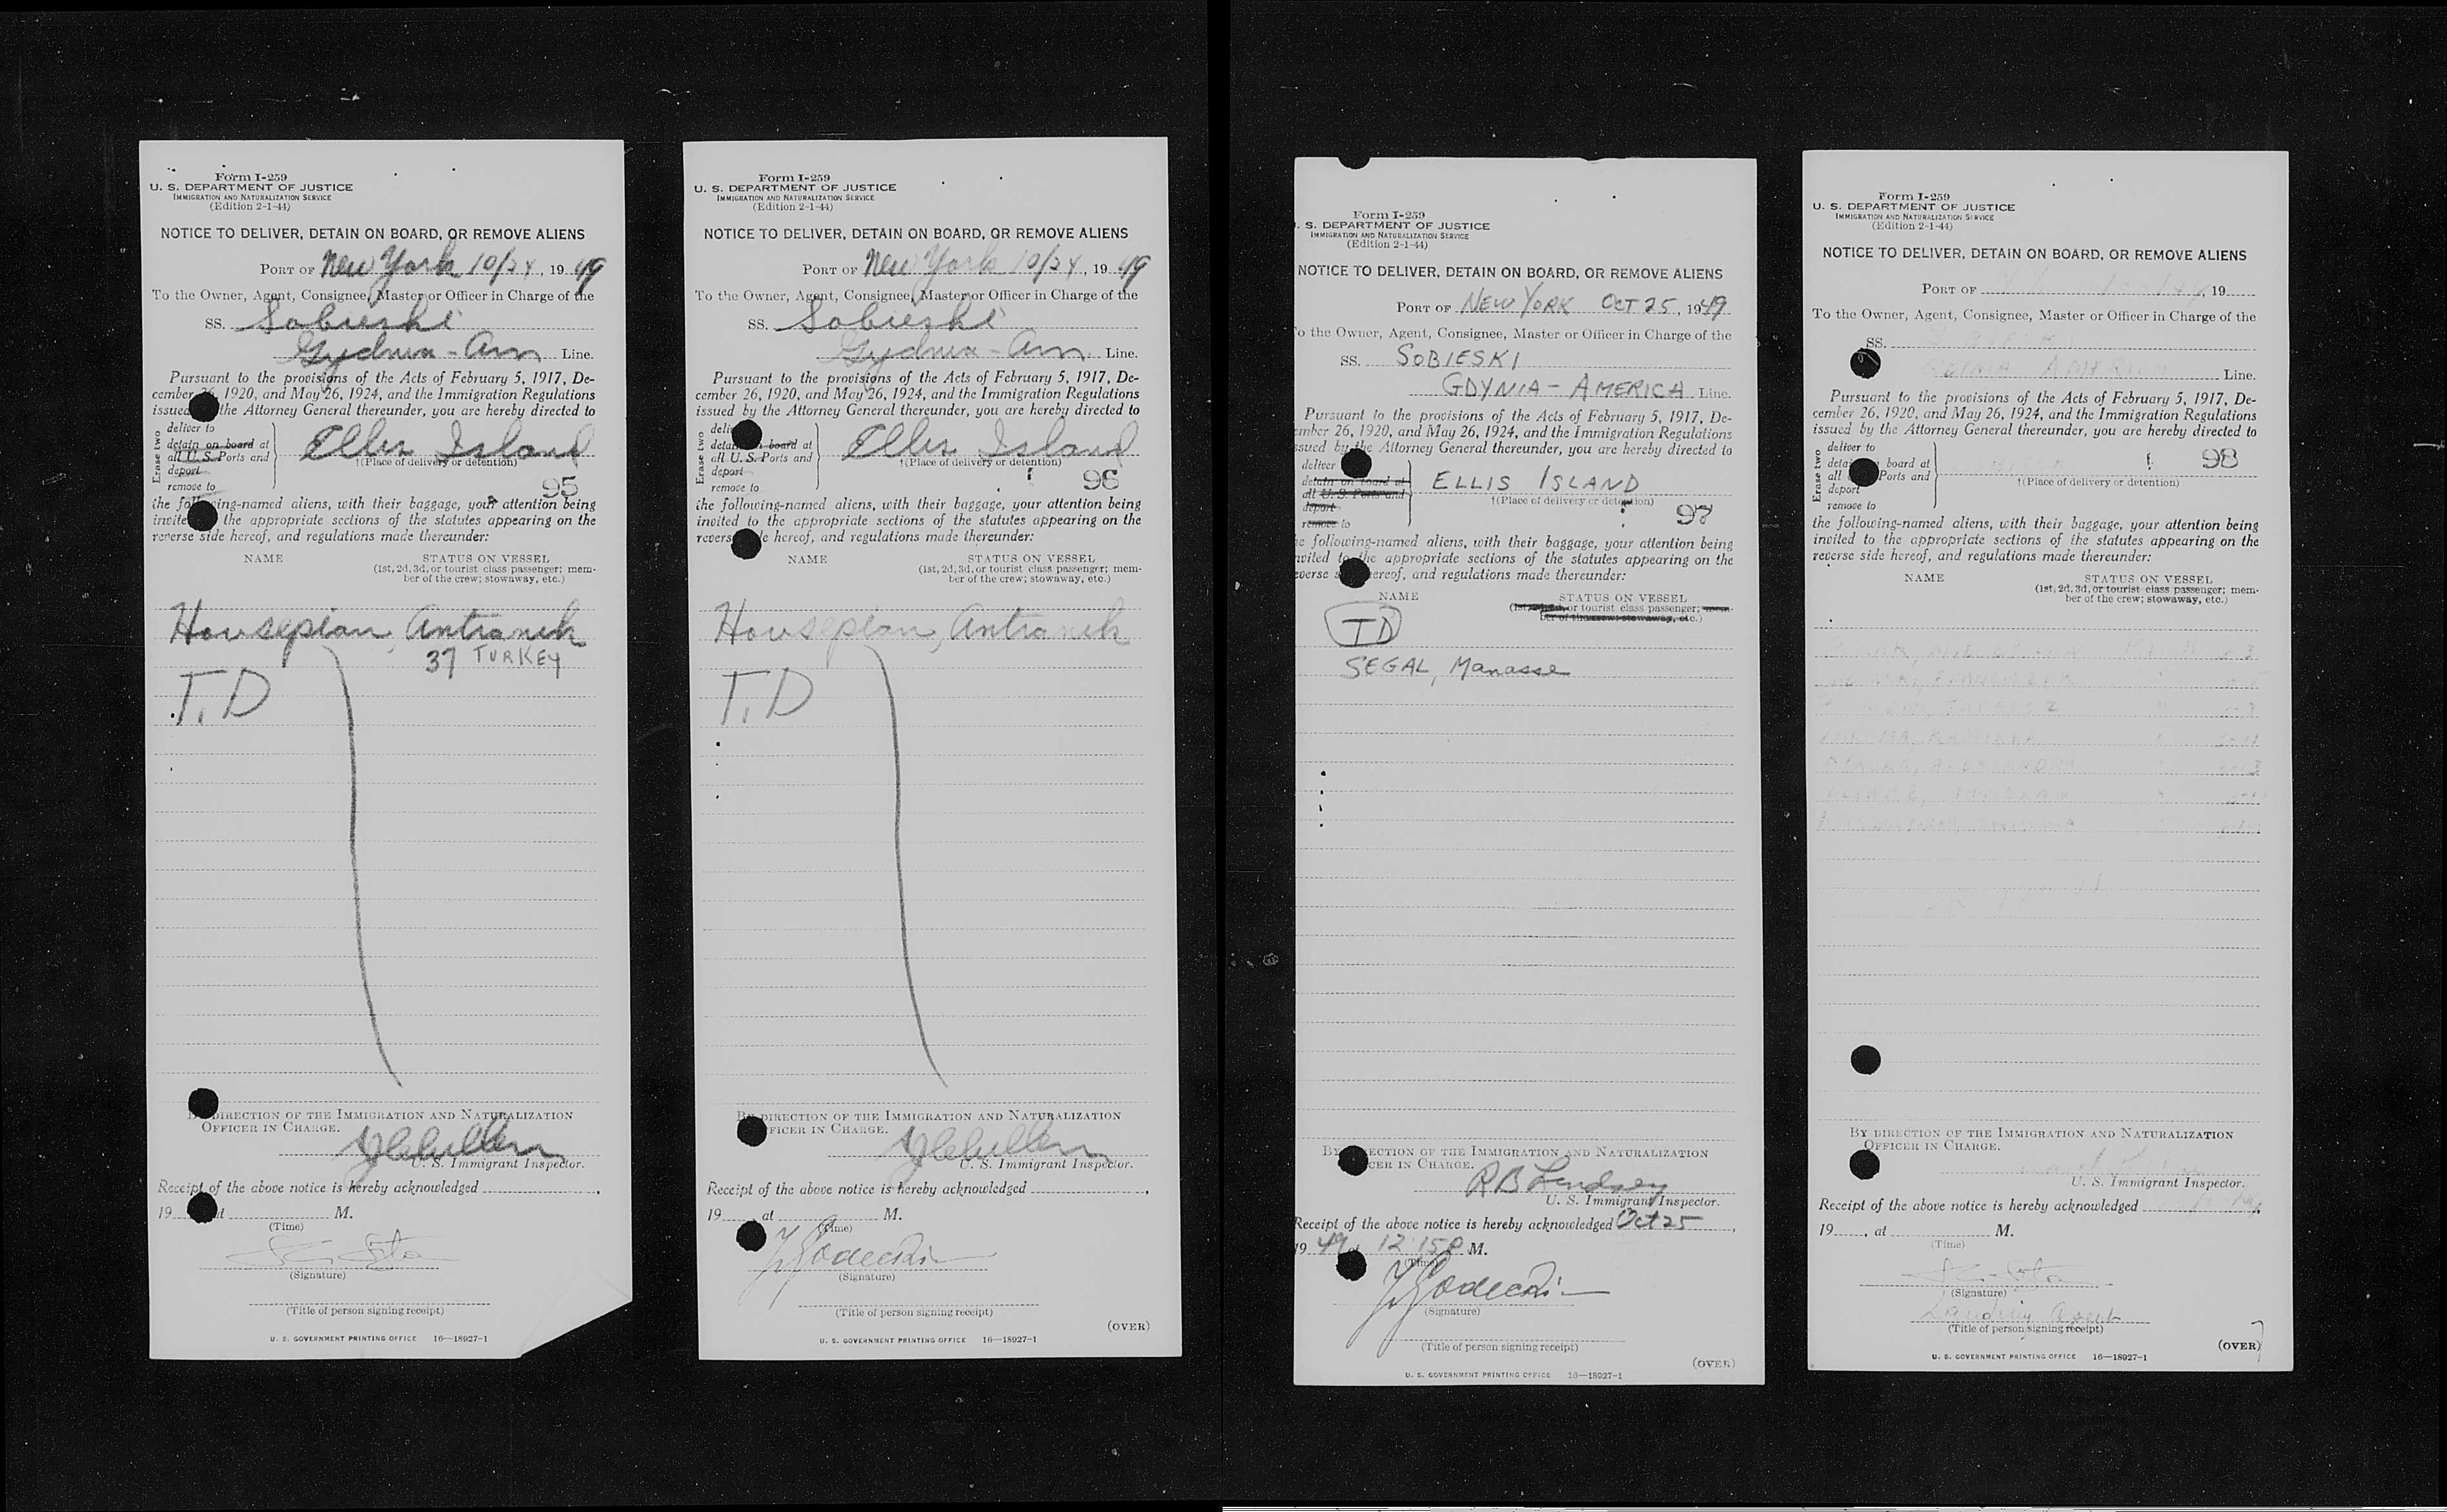 Form I-259
U. S. DEPARTMENT OF JUSTICE
IMMIGRATION AND NATURALIZATION SERVICE
(Edition 2-1-44)
NOTICE TO DELIVER, DETAIN ON BOARD, OR REMOVE ALIENS
PORT OF New York 10/24, 19 49
To the Owner, Agent, Consignee, Master or Officer in Charge of the
SS. Sobieski
Gydnia - Am Line.
Pursuant to the provisions of the Acts of February 5, 1917, De-
cember 26, 1920, and May 26, 1924, and the Immigration Regulations
issued the Attorney General thereunder, you are hereby directed to
Erase two
deliver to
detain on board at
all U. S. Ports and
deport
remove to
Ellis Island
†(Place of delivery or detention)
95
the following-named aliens, with their baggage, your attention being
invited the appropriate sections of the statutes appearing on the
reverse side hereof, and regulations made thereunder:
NAME STATUS ON VESSEL
(1st, 2d, 3d, or tourist class passenger; mem-
ber of the crew; stowaway, etc.)
Housepian, Antranik
37 TURKEY
T.D
BY DIRECTION OF THE IMMIGRATION AND NATURALIZATION
OFFICER IN CHARGE.
U. S. Immigrant Inspector.
Receipt of the above notice is hereby acknowledged
19 at M.
(Time)
(Signature)
(Title of person signing receipt)
U. S. GOVERNMENT PRINTING OFFICE 16—18927-1
Form I-259
U. S. DEPARTMENT OF JUSTICE
IMMIGRATION AND NATURALIZATION SERVICE
(Edition 2-1-44)
NOTICE TO DELIVER, DETAIN ON BOARD, OR REMOVE ALIENS
PORT OF New York 10/24, 19 49
To the Owner, Agent, Consignee, Master or Officer in Charge of the
SS. Sobieski
Gydnia - Am Line.
Pursuant to the provisions of the Acts of February 5, 1917, De-
cember 26, 1920, and May 26, 1924, and the Immigration Regulations
issued by the Attorney General thereunder, you are hereby directed to
Erase two
deliver
detain on board at
all U. S. Ports and
deport
remove to
Ellis Island
†(Place of delivery or detention)
96
the following-named aliens, with their baggage, your attention being
invited to the appropriate sections of the statutes appearing on the
reverse hereof, and regulations made thereunder:
NAME STATUS ON VESSEL
(1st, 2d, 3d, or tourist class passenger; mem-
ber of the crew; stowaway, etc.)
Housepian, Antranik
T.D
BY DIRECTION OF THE IMMIGRATION AND NATURALIZATION
OFFICER IN CHARGE.
U. S. Immigrant Inspector.
Receipt of the above notice is hereby acknowledged
19 , at M.
(Time)
(Signature)
(Title of person signing receipt)
(OVER)
U. S. GOVERNMENT PRINTING OFFICE 16—18927-1
Form I-259
. S. DEPARTMENT OF JUSTICE
IMMIGRATION AND NATURALIZATION SERVICE
(Edition 2-1-44)
NOTICE TO DELIVER, DETAIN ON BOARD, OR REMOVE ALIENS
PORT OF NEW YORK OCT 25, 1949
To the Owner, Agent, Consignee, Master or Officer in Charge of the
SS. SOBIESKI
GDYNIA - AMERICA Line.
Pursuant to the provisions of the Acts of February 5, 1917, De-
ember 26, 1920, and May 26, 1924, and the Immigration Regulations
ssued by the Attorney General thereunder, you are hereby directed to
deliver
detain on board at
all U. S. Ports and
deport
remove to
ELLIS ISLAND
†(Place of delivery or detention)
97
he following-named aliens, with their baggage, your attention being
nvited to the appropriate sections of the statutes appearing on the
everse hereof, and regulations made thereunder:
NAME STATUS ON VESSEL
(1st, 2d, 3d, or tourist class passenger; mem-
ber of the crew; stowaway, etc.)
TD
SEGAL, Manasse
BY DIRECTION OF THE IMMIGRATION AND NATURALIZATION
OFFICER IN CHARGE.
RB Lindsey
U. S. Immigrant Inspector.
Receipt of the above notice is hereby acknowledged Oct 25,
19 49 12 15 P M.
(Time)
(Signature)
(Title of person signing receipt)
(OVER)
U. S. GOVERNMENT PRINTING OFFICE 16—18927-1
Form I-259
U. S. DEPARTMENT OF JUSTICE
IMMIGRATION AND NATURALIZATION SERVICE
(Edition 2-1-44)
NOTICE TO DELIVER, DETAIN ON BOARD, OR REMOVE ALIENS
PORT OF , 19
To the Owner, Agent, Consignee, Master or Officer in Charge of the
SS.
AMERICA Line.
Pursuant to the provisions of the Acts of February 5, 1917, De-
cember 26, 1920, and May 26, 1924, and the Immigration Regulations
issued by the Attorney General thereunder, you are hereby directed to
Erase two
deliver to
detain board at
all Ports and
deport
remove to
†(Place of delivery or detention)
98
the following-named aliens, with their baggage, your attention being
invited to the appropriate sections of the statutes appearing on the
reverse side hereof, and regulations made thereunder:
NAME STATUS ON VESSEL
(1st, 2d, 3d, or tourist class passenger; mem-
ber of the crew; stowaway, etc.)
BY DIRECTION OF THE IMMIGRATION AND NATURALIZATION
OFFICER IN CHARGE.
U. S. Immigrant Inspector.
Receipt of the above notice is hereby acknowledged
19 , at M.
(Time)
(Signature)
Landing Agent
(Title of person signing receipt)
(OVER)
U. S. GOVERNMENT PRINTING OFFICE 16—18927-1